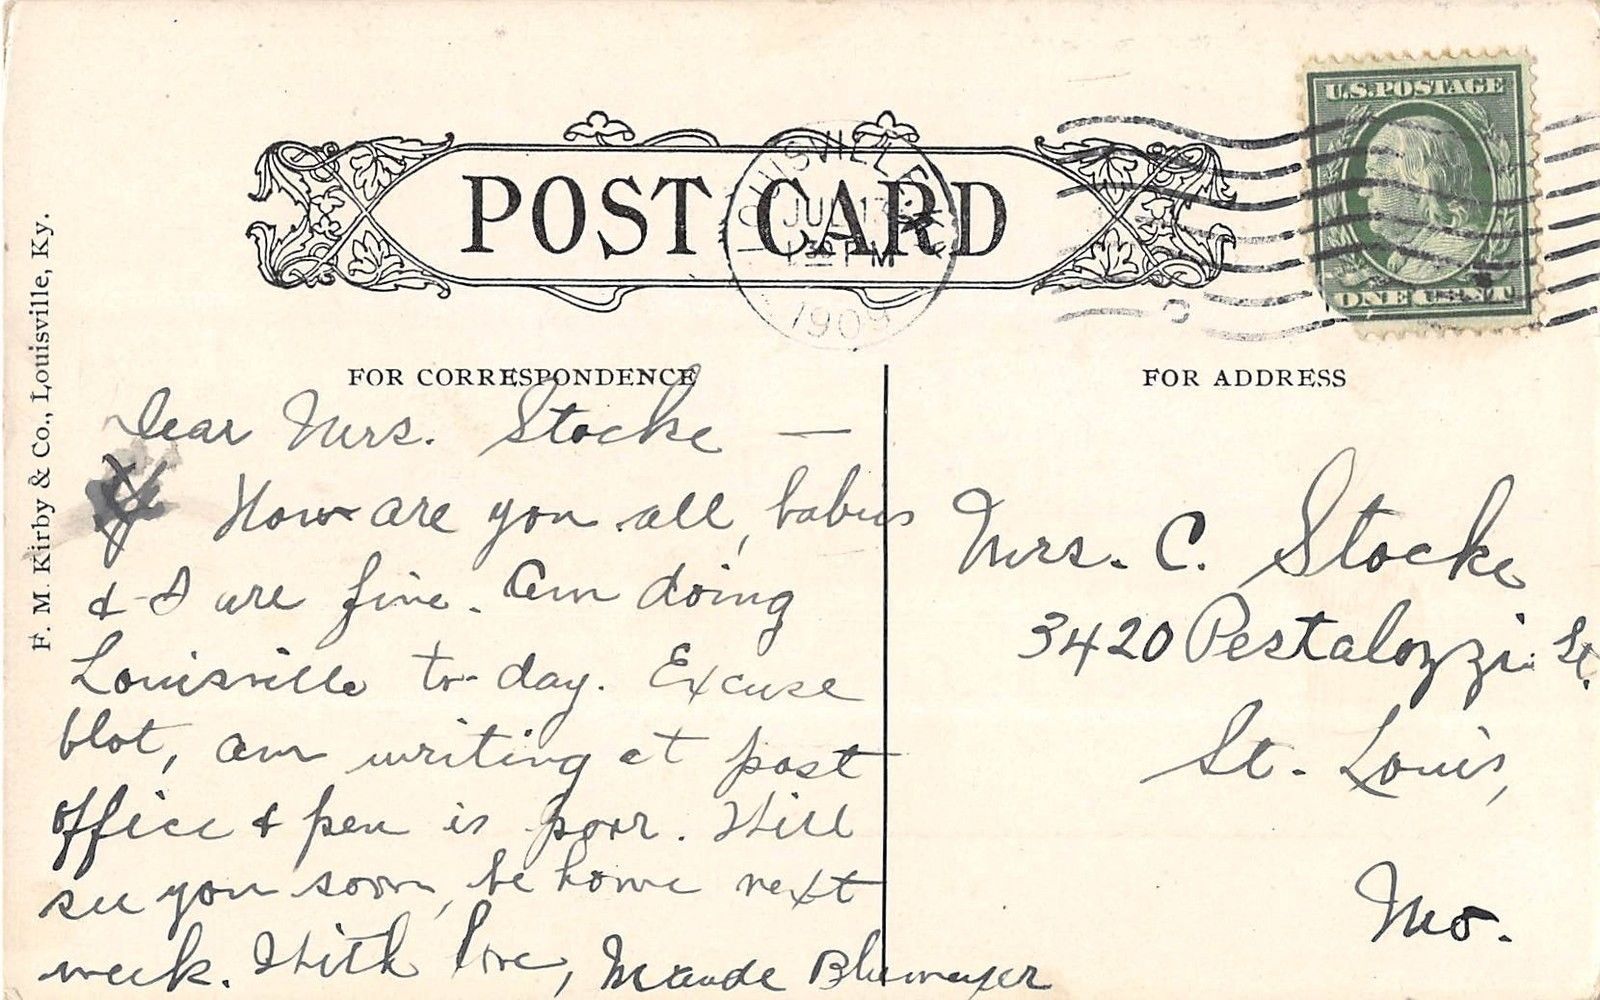 U.S.POSTAGE
ONE CENT
POST CARD
LOUISVILLE, KY.
JUL 13
1 30 PM
1909
F. M. Kirby & Co., Louisville, Ky.
FOR CORRESPONDENCE
Dear Mrs. Stocke —
How are you all, babies
& I are fine. Am doing
Louisville to-day. Excuse
blot, am writing at post
office & pen is poor. Will
see you soon, be home next
week. With love, Maude Blumeyer
FOR ADDRESS
Mrs. C. Stocke
3420 Pestalozzi St.
St. Louis,
Mo.